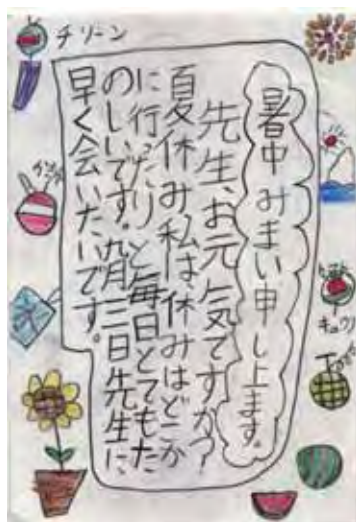 チリーン
暑中みまい申し上ます。
先生、お元気ですか?
夏休み私は、休みはどこか
に行ったりと毎日とてもた
のしいです。九月三日先生に、
早く会いたいです。